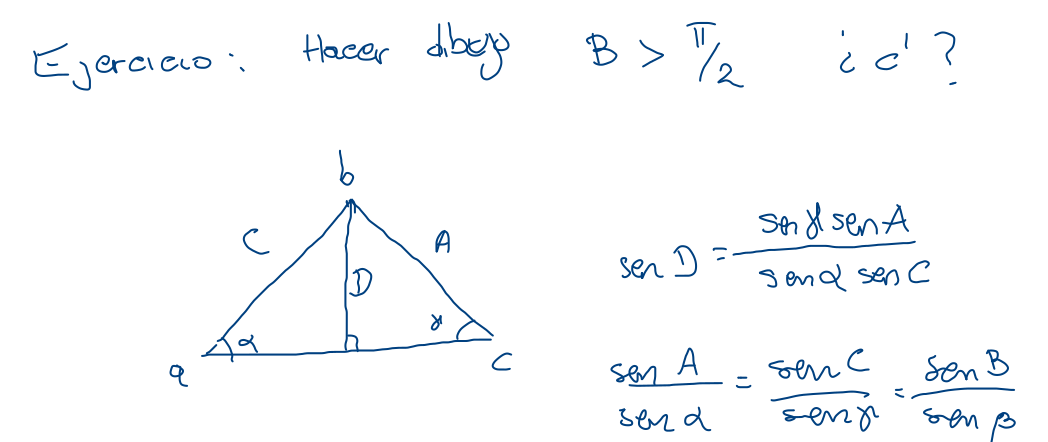 Ejercicio: Hacer dibujo B > π/2 ¿ c' ?
b
C A
D
α γ
a c
sen D = sen γ sen A / sen α sen C
sen A / sen α = sen C / sen γ = sen B / sen β